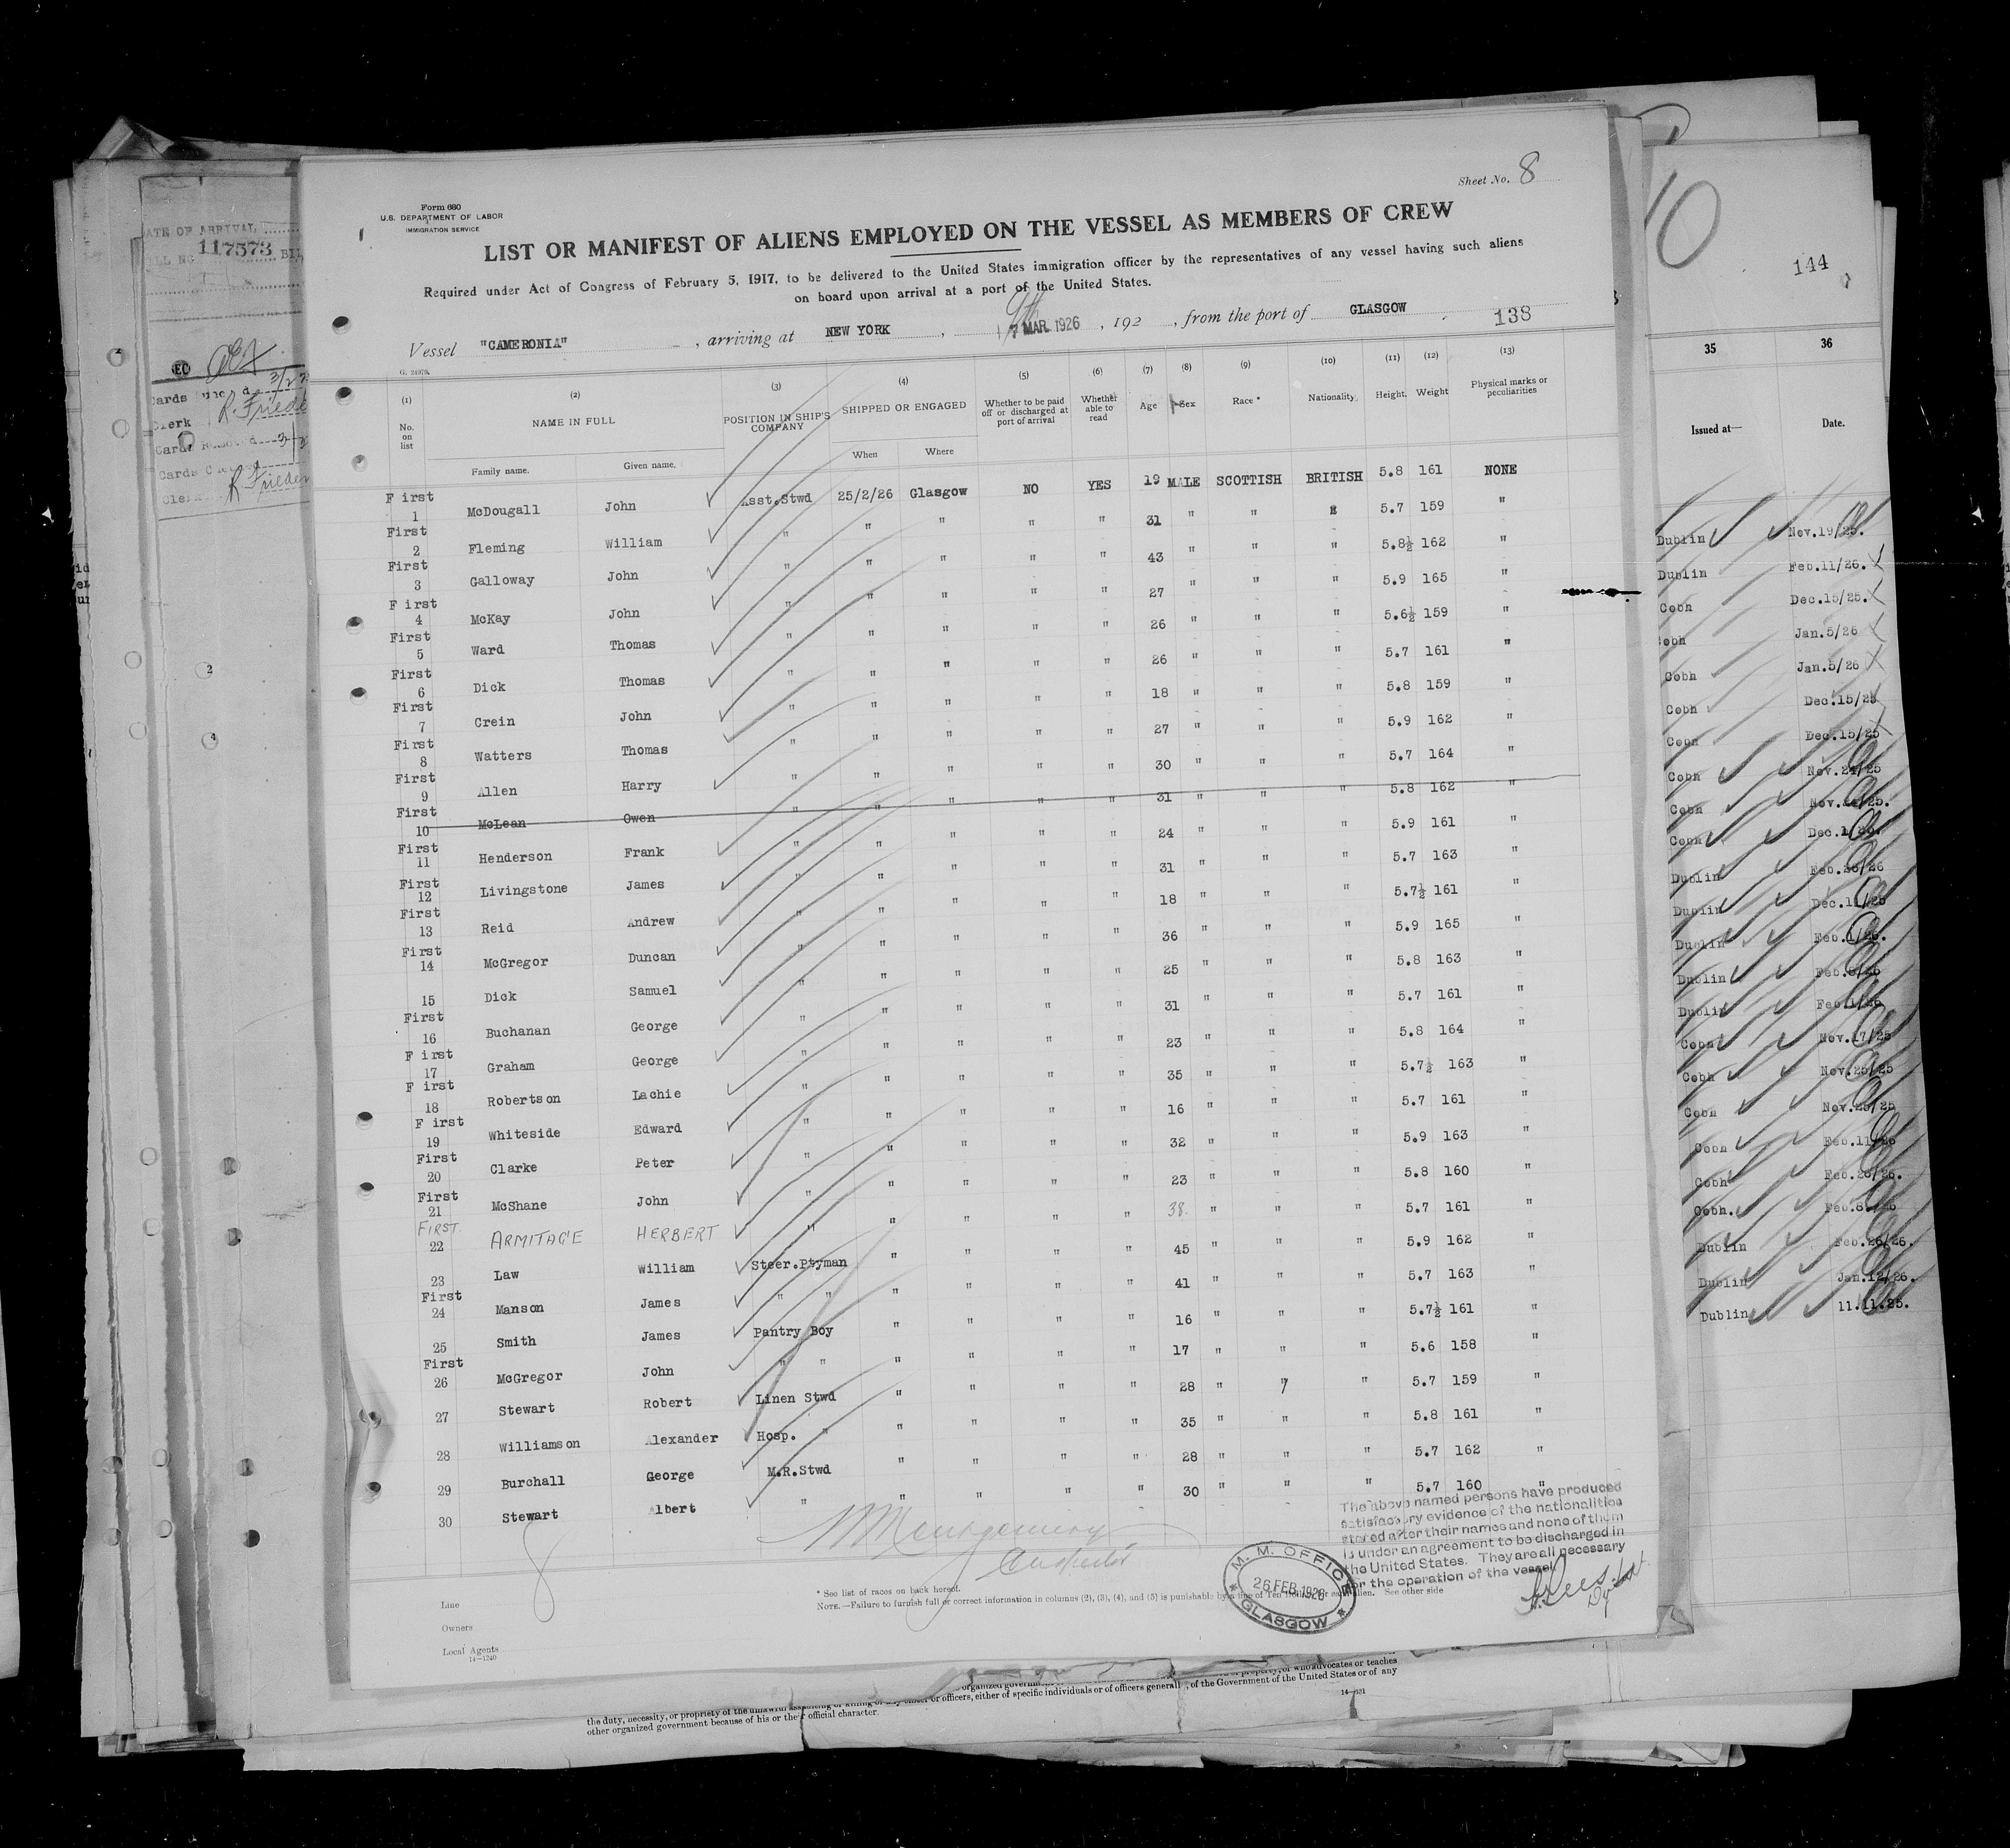 Sheet No. 8
Form 680
U.S. DEPARTMENT OF LABOR
IMMIGRATION SERVICE
LIST OR MANIFEST OF ALIENS EMPLOYED ON THE VESSEL AS MEMBERS OF CREW
Required under Act of Congress of February 5, 1917, to be delivered to the United States immigration officer by the representatives of any vessel having such aliens
on board upon arrival at a port of the United States.
Vessel "CAMERONIA", arriving at NEW YORK, 7 MAR. 1926, 192 , from the port of GLASGOW 138
(1) No. on list (2) NAME IN FULL Family name. Given name. (3) POSITION IN SHIP'S COMPANY (4) SHIPPED OR ENGAGED When Where (5) Whether to be paid off or discharged at port of arrival (6) Whether able to read (7) Age (8) Sex (9) Race * (10) Nationality (11) Height (12) Weight (13) Physical marks or peculiarities
First 1 McDougall John Asst.Stwd 25/2/26 Glasgow NO YES 19 MALE SCOTTISH BRITISH 5.8 161 NONE
First 2 Fleming William " " " " " 31 " " " 5.7 159 "
First 3 Galloway John " " " " " 43 " " " 5.8½ 162 "
First 4 McKay John " " " " " 27 " " " 5.9 165 "
First 5 Ward Thomas " " " " " 26 " " " 5.6½ 159 "
First 6 Dick Thomas " " " " " 26 " " " 5.7 161 "
First 7 Crein John " " " " " 18 " " " 5.8 159 "
First 8 Watters Thomas " " " " " 27 " " " 5.9 162 "
First 9 Allen Harry " " " " " 30 " " " 5.7 164 "
First 10 McLean Owen " " " " " 31 " " " 5.8 162 "
First 11 Henderson Frank " " " " " 24 " " " 5.9 161 "
First 12 Livingstone James " " " " " 31 " " " 5.7 163 "
First 13 Reid Andrew " " " " " 18 " " " 5.7½ 161 "
First 14 McGregor Duncan " " " " " 36 " " " 5.9 165 "
15 Dick Samuel " " " " " 25 " " " 5.8 163 "
First 16 Buchanan George " " " " " 31 " " " 5.7 161 "
First 17 Graham George " " " " " 23 " " " 5.8 164 "
First 18 Robertson Lachie " " " " " 35 " " " 5.7½ 163 "
First 19 Whiteside Edward " " " " " 16 " " " 5.7 161 "
First 20 Clarke Peter " " " " " 32 " " " 5.9 163 "
First 21 McShane John " " " " " 23 " " " 5.8 160 "
FIRST. 22 ARMITAGE HERBERT " " " " " 38. " " " 5.7 161 "
23 Law William Steer.Ptyman " " " " 45 " " " 5.9 162 "
First 24 Manson James " " " " " " 41 " " " 5.7 163 "
25 Smith James Pantry Boy " " " " 16 " " " 5.7½ 161 "
First 26 McGregor John " " " " " " 17 " " " 5.6 158 "
27 Stewart Robert Linen Stwd " " " " 28 " " " 5.7 159 "
28 Williamson Alexander Hosp. " " " " " 35 " " " 5.8 161 "
29 Burchall George M.R.Stwd " " " " 28 " " " 5.7 162 "
30 Stewart Albert " " " " " 30 " " " 5.7 160 "
The above named persons have produced
satisfactory evidence of the nationalities
stated after their names and none of them
is under an agreement to be discharged in
the United States. They are all necessary
for the operation of the vessel
8
M. M. OFFICE
26 FEB. 1926
GLASGOW
* See list of races on back hereof.
NOTE.—Failure to furnish full or correct information in columns (2), (3), (4), and (5) is punishable by a fine of Ten alien. See other side
Line
Owners
Local Agents
14—1240
DATE OF ARRIVAL
117573
Clerk
R. Frieden
Clerk
R. Frieden
10
144
35 36
Issued at— Date.
Dublin Nov.19/25.
Dublin Feb.11/26.
Cobh Dec.15/25.
Cobh Jan.5/26
Cobh Jan.5/26
Cobh Dec.15/25
Cobh Dec.15/25
Cobh Nov.24/25
Cobh Nov.24/25.
Cobh Dec.
Dublin Feb.26/26
Dublin Dec.11/25
Dublin Feb.1/26.
Dublin Feb.8/26
Dublin Feb.1/26
Cobh Nov.17/25
Cobh Nov.25/25
Cobh Nov.25/25
Cobh Feb.11/26
Cobh Feb.26/26.
Cobh. Feb.8./26
Dublin Feb.26/26.
Dublin Jan.12/26.
Dublin 11.11.25.
property, or who advocates or teaches
the duty, necessity, or propriety of the unlawful or officers, either of specific individuals or of officers generally, of the Government of the United States or of any
other organized government because of his or their official character.